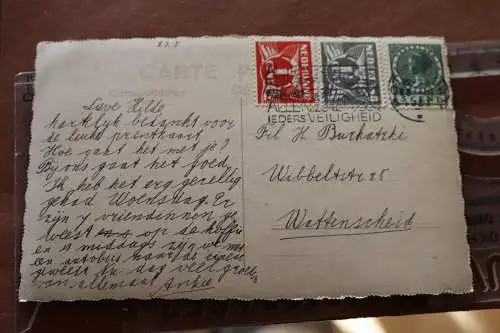 CARTE
NEDERLAND
NEDERLAND
IEDERS VEILIGHEID
Lieve Hilde
hartelijk bedankt voor
de leuke prentkaart
Hoe gaat het met je?
Bij ons gaat het goed,
Ik heb het erg gezellig
gehad Woensdag. Er
zijn 7 vriendinnen ge
weest op de koffie
en 's middags zijn we met
een autobus naar de
geweest. Nu dag veel groetjes
van allemaal Ankie
Frl H. Buchatzki
Wibbeltstr 25
Wattenscheid